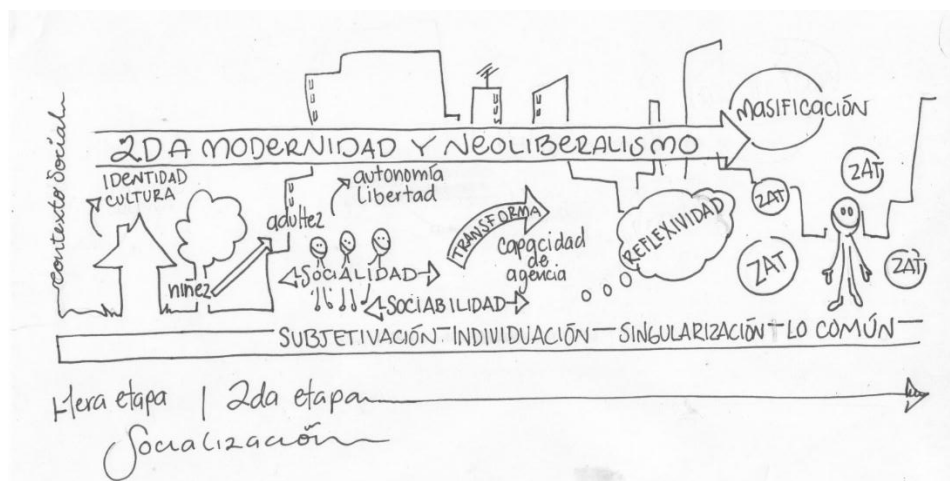 contexto Social
MASIFICACIÓN
2DA MODERNIDAD Y NEOLIBERALISMO
IDENTIDAD
CULTURA
autonomía
libertad
adultez
niñez
SOCIALIDAD
SOCIABILIDAD
TRANSFORMA
capacidad
de
agencia
REFLEXIVIDAD
ZAT
ZAT
ZAT
ZAT
SUBJETIVACIÓN - INDIVIDUACIÓN - SINGULARIZACIÓN - LO COMÚN
1era etapa | 2da etapa
Socialización